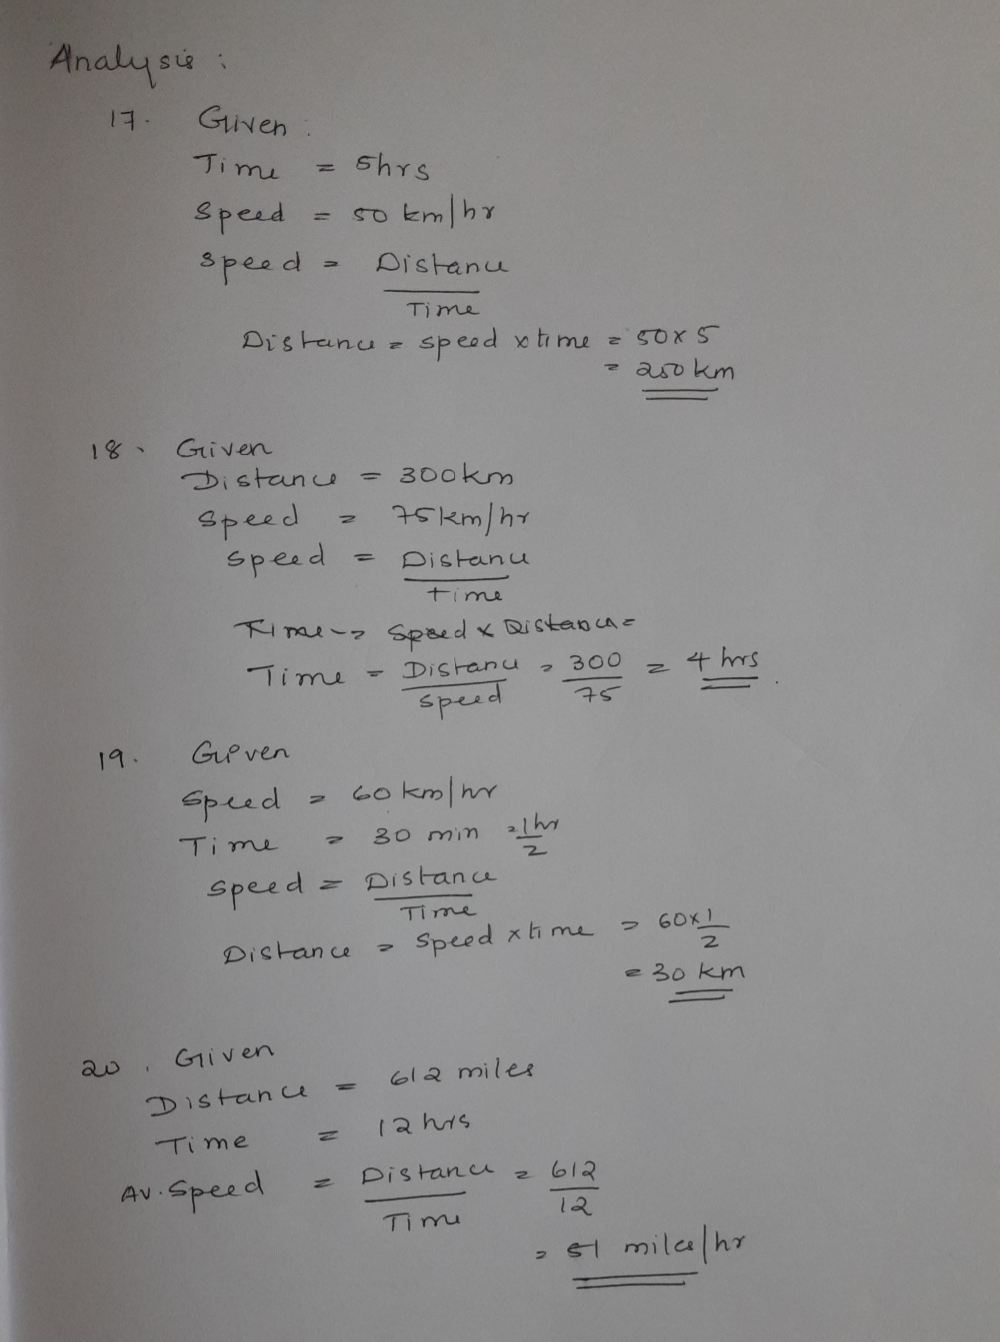 Analysis :
17. Given :
Time = 5hrs
Speed = 50 km/hr
Speed = Distance
Time
Distance = speed x time = 50 x 5
= 250 km
18. Given
Distance = 300km
Speed = 75km/hr
Speed = Distance
time
Time = Speed x Distance =
Time = Distance = 300 = 4 hrs.
Speed 75
19. Given
Speed = 60 km/hr
Time = 30 min = 1hr
2
Speed = Distance
Time
Distance = Speed x time = 60x1
2
= 30 km
20. Given
Distance = 612 miles
Time = 12 hrs
Av. Speed = Distance = 612
Time 12
= 51 miles/hr